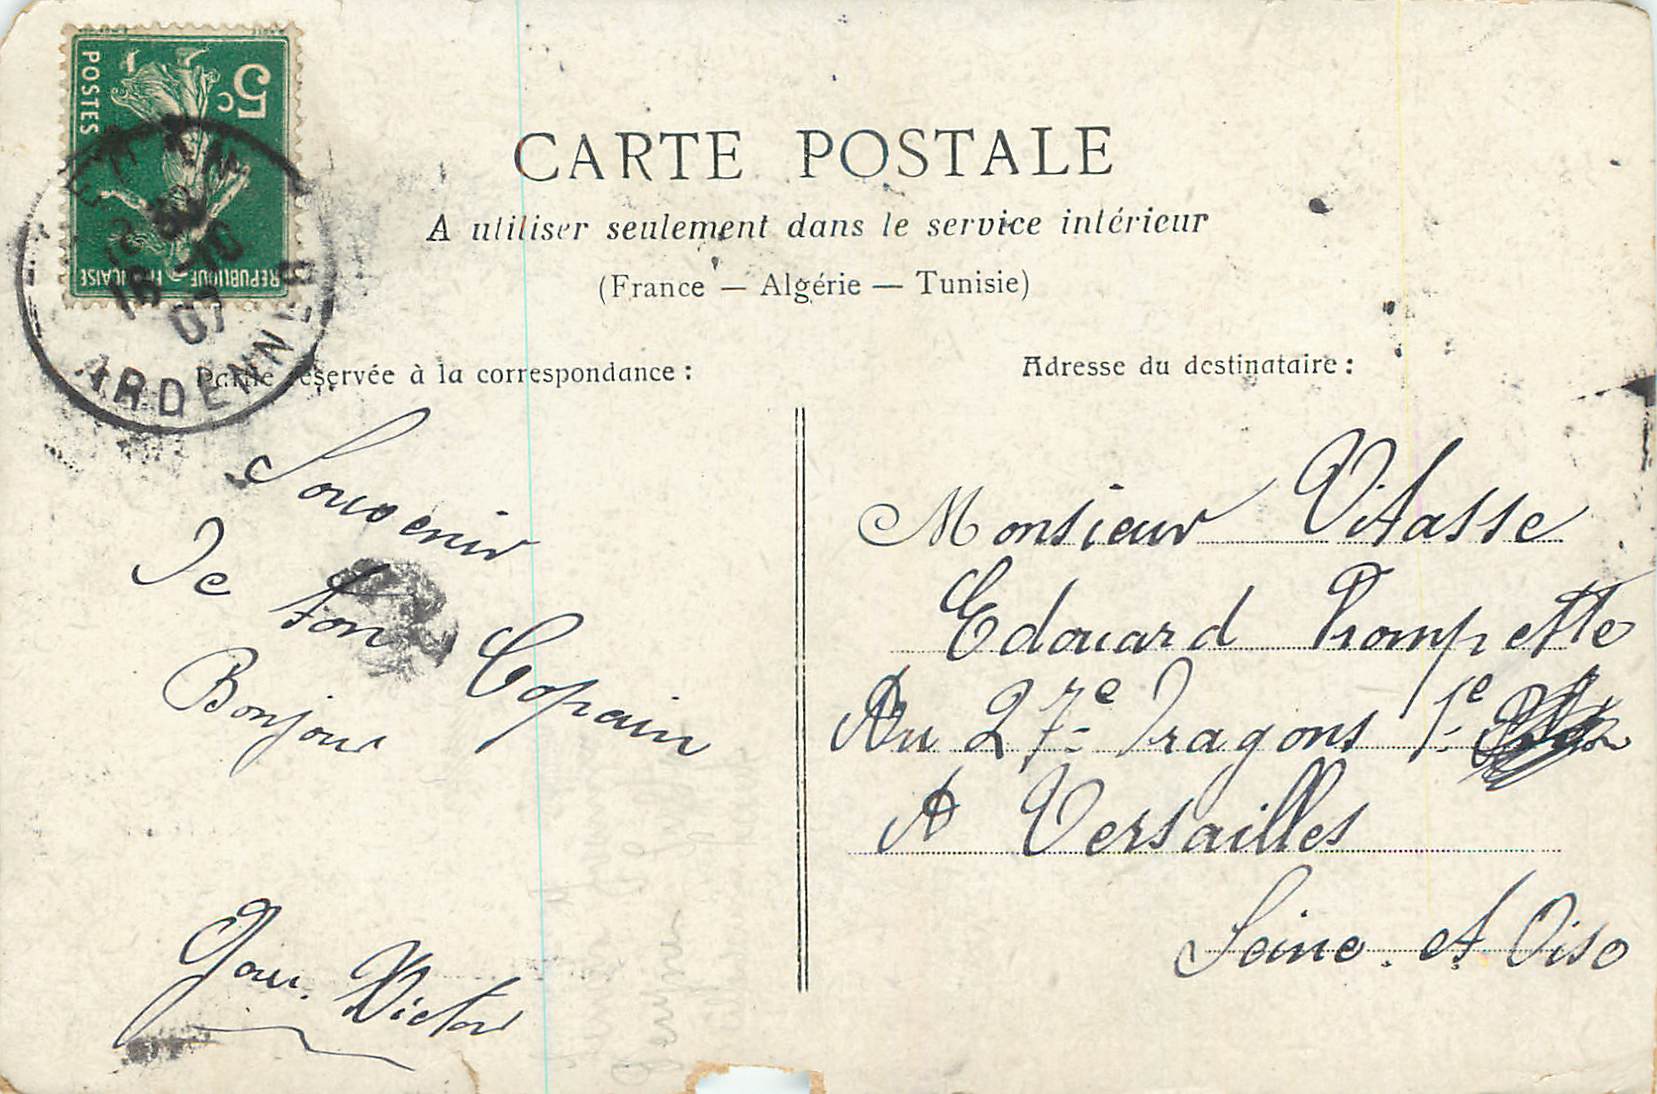 5c
POSTES
REPUBLIQUE FRANÇAISE
18 -10
07
ARDENNES
CARTE POSTALE
A utiliser seulement dans le service intérieur
(France — Algérie — Tunisie)
Partie réservée à la correspondance :
Souvenir
De ton Copain
Bonjour
Victor
Adresse du destinataire :
Monsieur Vitasse
Edouard Trompette
Au 27e Dragons 1e
A Versailles
Seine et Oise